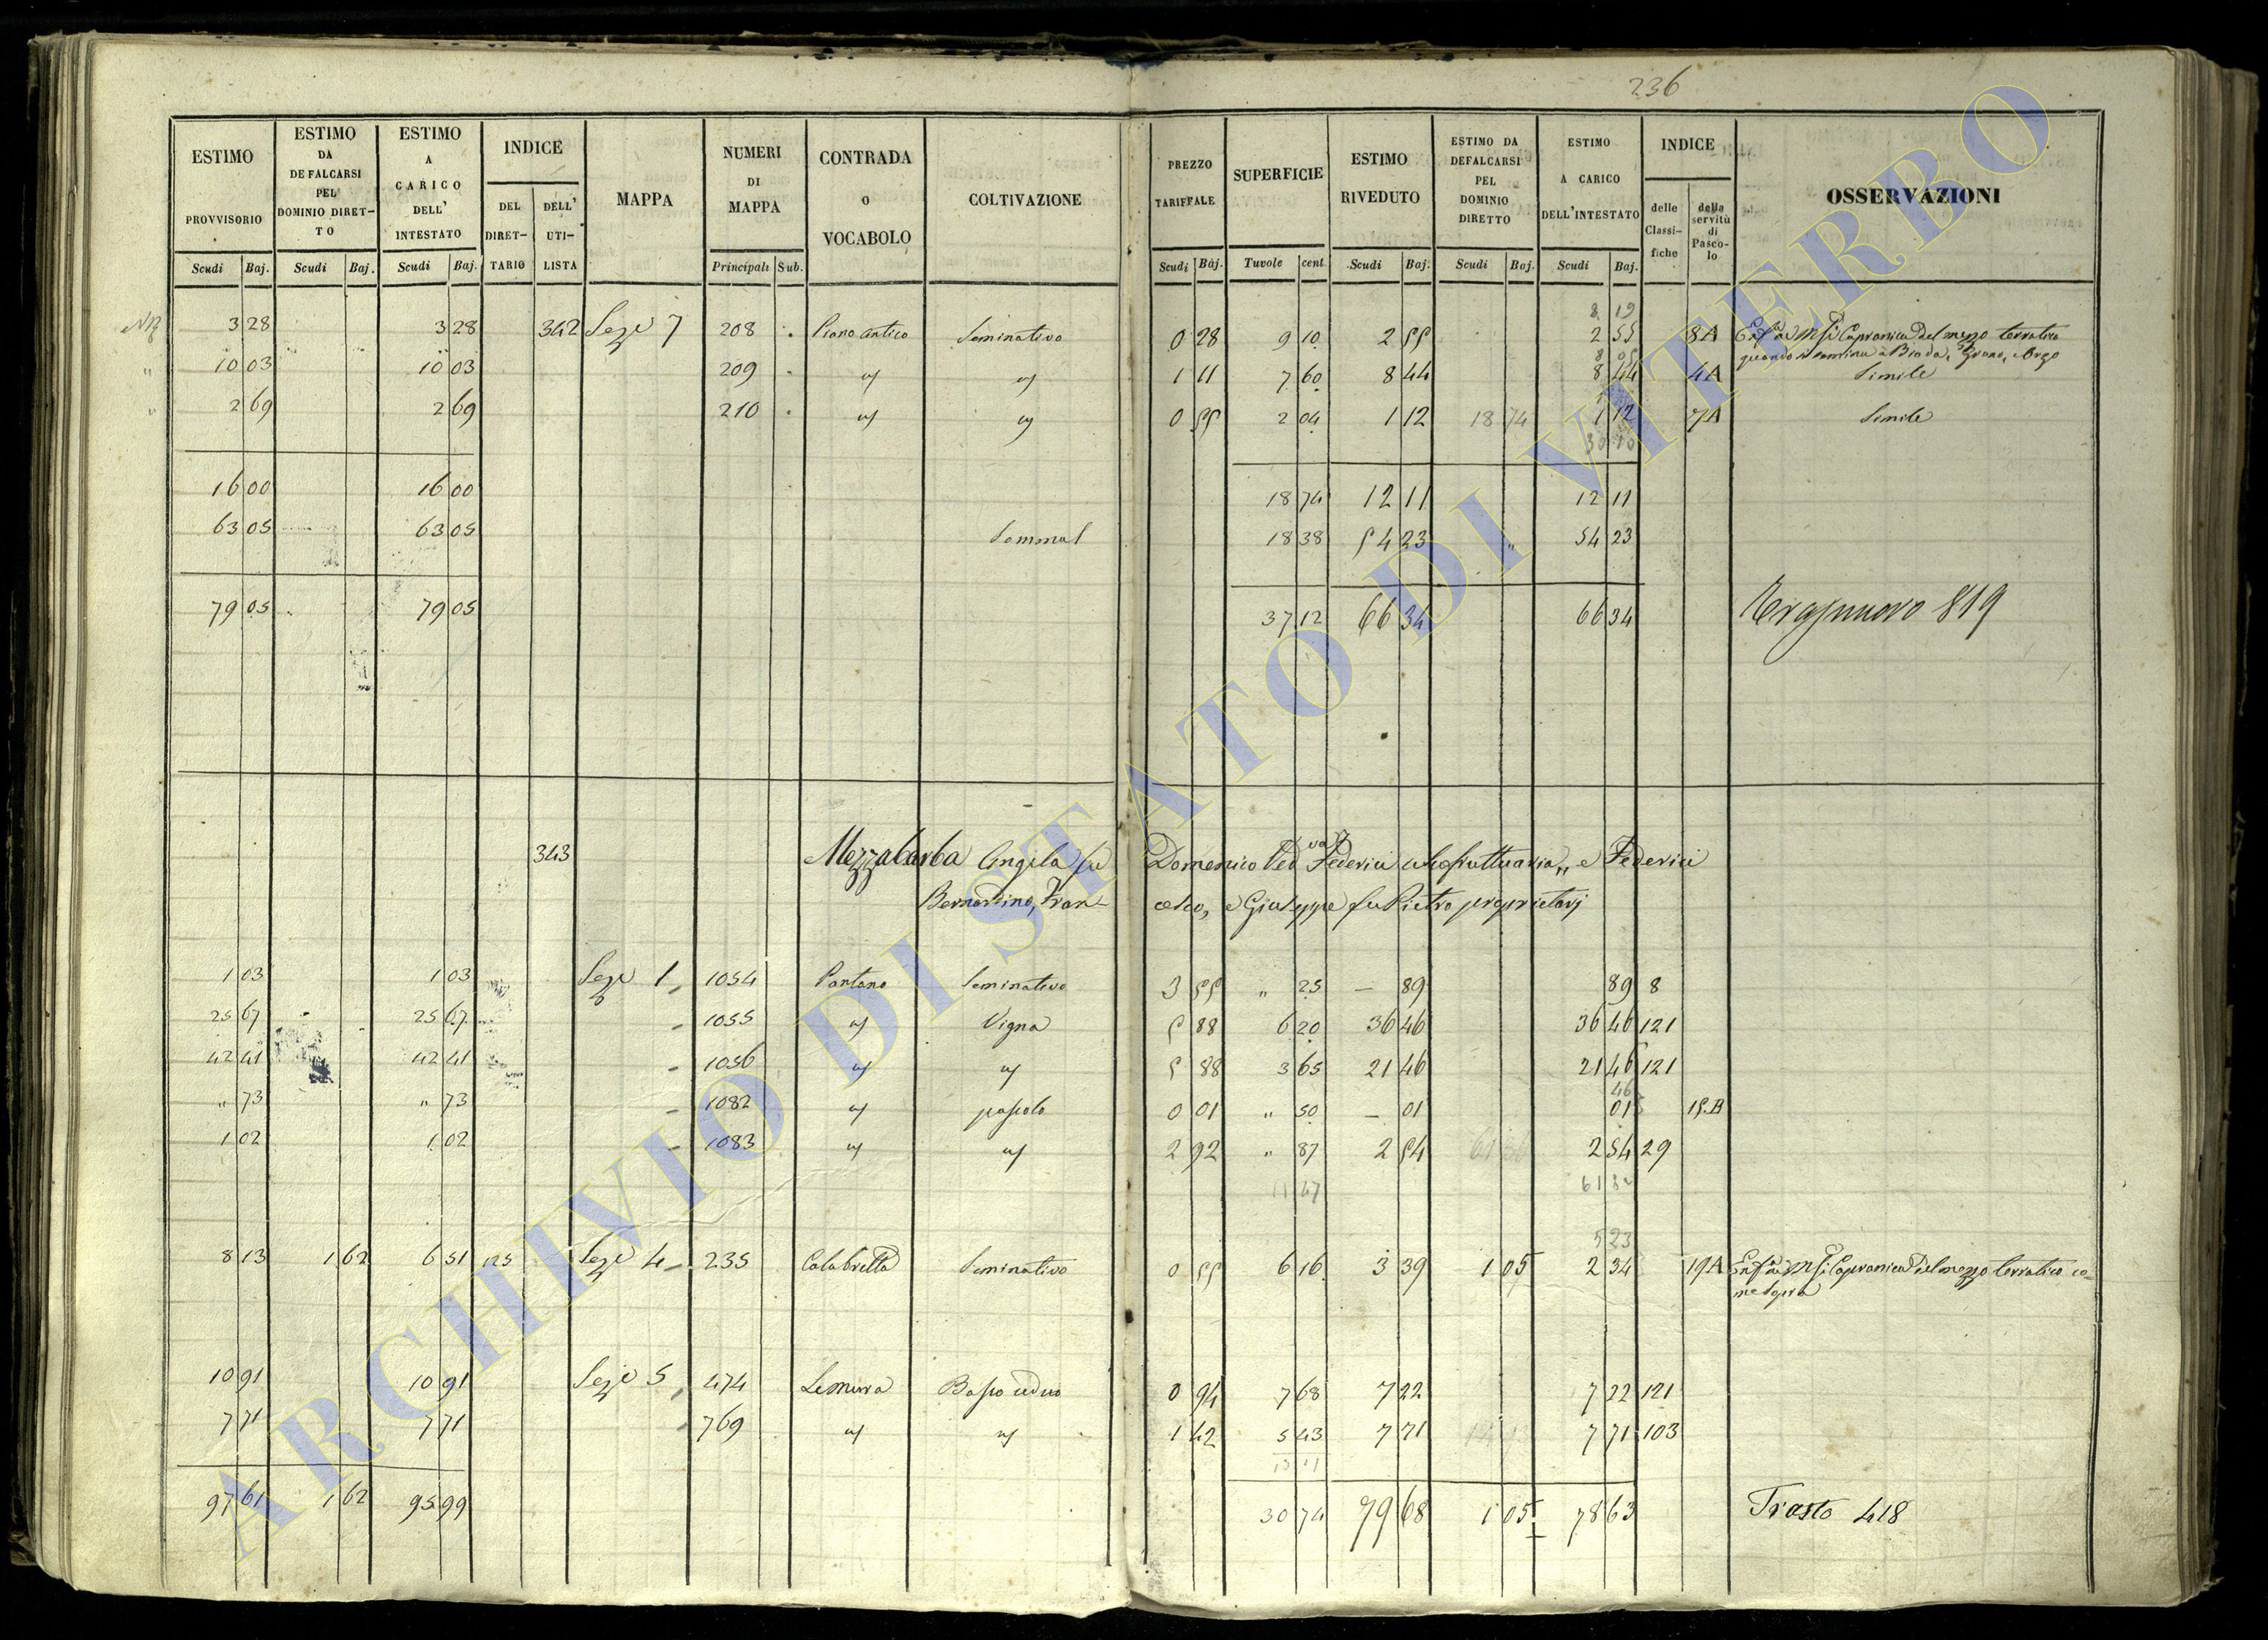 236
ESTIMO PROVVISORIO | ESTIMO DA DEFALCARSI PEL DOMINIO DIRET-TO | ESTIMO A CARICO DELL' INTESTATO | INDICE DEL DIRET-TARIO | DELL' UTI-LISTA | MAPPA | NUMERI DI MAPPA | CONTRADA O VOCABOLO | COLTIVAZIONE | PREZZO TARIFFALE | SUPERFICIE | ESTIMO RIVEDUTO | ESTIMO DA DEFALCARSI PEL DOMINIO DIRETTO | ESTIMO A CARICO DELL'INTESTATO | INDICE delle Classi-fiche | della servitù di Pasco-lo | OSSERVAZIONI
Scudi Baj. | Scudi Baj. | Scudi Baj. | Principali Sub. | Scudi Baj. | Tavole cent. | Scudi Baj. | Scudi Baj. | Scudi Baj.
8 19
3 28 | 3 28 | 342 | Seze 7 | 208 | Piano antico | Seminativo | 0 28 | 9 10 | 2 55 | 2 55 | 8A | Capranica del mezzo terratico
quando si semina a Biada, Grano, Orzo
10 03 | 10 03 | 209 | " | " | 1 11 | 7 60 | 8 44 | 8 44 | 4A | Simile
2 69 | 2 69 | 210 | " | " | 0 55 | 2 04 | 1 12 | 18 74 | 1 12 | 7A | Simile
30 10
16 00 | 16 00 | 18 74 | 12 11 | 12 11
63 05 | 63 05 | Sommal | 18 38 | 54 23 | " | 54 23
79 05 | 79 05 | 37 12 | 66 34 | 66 34 | 819
343 | Mezzabarba Angela fu Domenico Ved va Federici usufruttuaria, e Federici
Bernardino, Fran- cesco, e Giuseppe fu Pietro proprietarj
1 03 | 1 03 | Seze 1 | 1054 | Pantano | Seminativo | 3 55 | " 25 | — 89 | 89 | 8
25 67 | 25 67 | 1055 | " | Vigna | 5 88 | 6 20 | 36 46 | 36 46 | 121
42 41 | 42 41 | 1056 | " | " | 5 88 | 3 65 | 21 46 | 21 46 | 121
" 73 | " 73 | 1082 | " | pascolo | 0 01 | " 50 | — 01 | 01 | 15.B
1 02 | 1 02 | 1083 | " | " | 2 92 | " 87 | 2 54 | 2 54 | 29
11 47
5 23
8 13 | 1 62 | 6 51 | 125 | Seze 4 | 235 | Calabretta | Seminativo | 0 55 | 6 16 | 3 39 | 1 05 | 2 34 | 19A | Capranica del mezzo terratico co-
me sopra
10 91 | 10 91 | Seze 5 | 474 | Le mura | Bosco ceduo | 0 94 | 7 68 | 7 22 | 7 22 | 121
7 71 | 7 71 | 769 | " | " | 1 42 | 5 43 | 7 71 | 7 71 | 103
13 11
97 61 | 1 62 | 95 99 | 30 74 | 79 68 | 1 05 | 78 63 | Trasto 418
ARCHIVIO DI STATO DI VITERBO